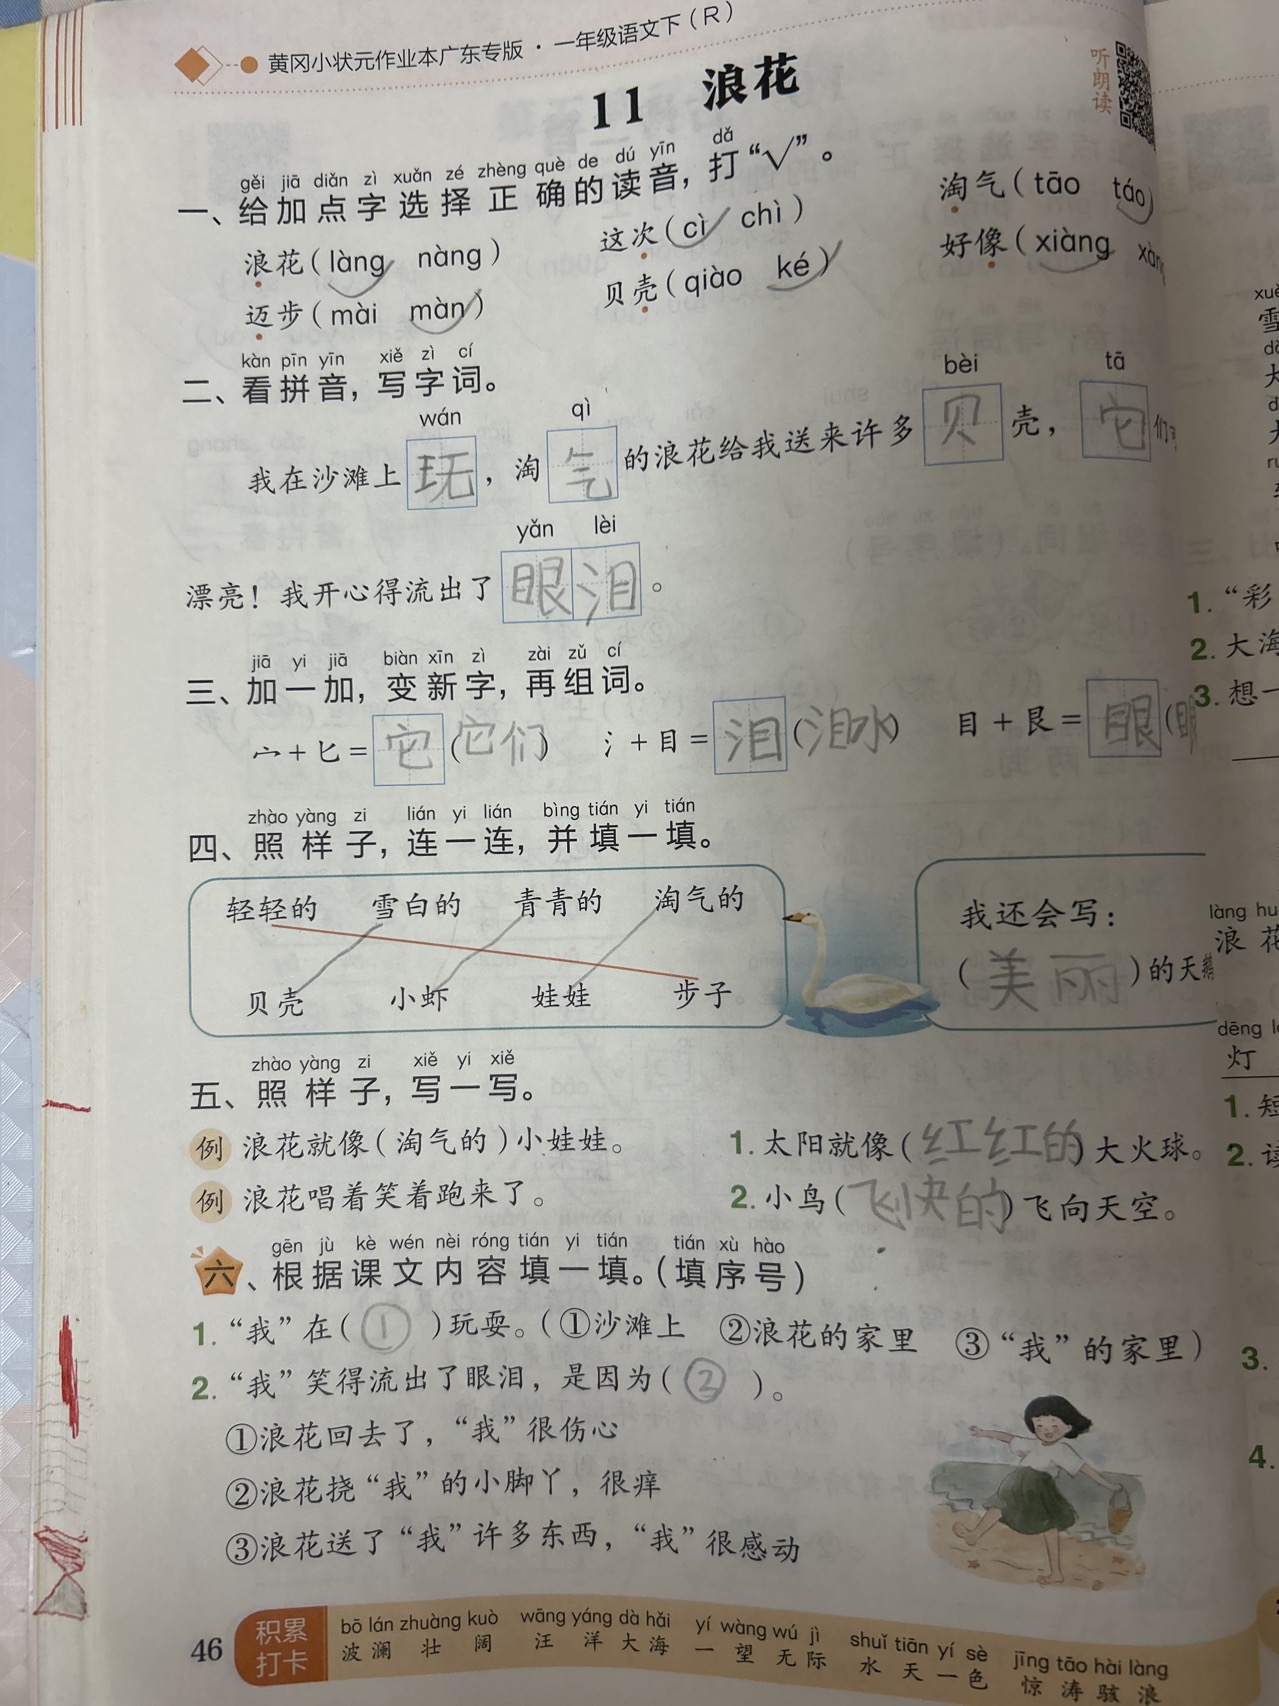 黄冈小状元作业本广东专版·一年级语文下(R)
听朗读
11 浪花
gěi jiā diǎn zì xuǎn zé zhèng què de dú yīn dǎ
一、给加点字选择正确的读音,打“√”。
浪花(làng nàng) 这次(cì chì) 淘气(tāo táo)
迈步(mài màn) 贝壳(qiào ké) 好像(xiàng
kàn pīn yīn xiě zì cí
二、看拼音,写字词。
wán qì bèi tā
我在沙滩上玩,淘气的浪花给我送来许多贝壳,它们
yǎn lèi
漂亮!我开心得流出了眼泪。
jiā yi jiā biàn xīn zì zài zǔ cí
三、加一加,变新字,再组词。
宀+匕=它(它们) 氵+目=泪(泪水) 目+艮=眼(眼
zhào yàng zi lián yi lián bìng tián yi tián
四、照样子,连一连,并填一填。
轻轻的 雪白的 青青的 淘气的
贝壳 小虾 娃娃 步子
我还会写:
(美丽)的天鹅
zhào yàng zi xiě yi xiě
五、照样子,写一写。
例 浪花就像(淘气的)小娃娃。 1.太阳就像(红红的)大火球。
例 浪花唱着笑着跑来了。 2.小鸟(飞快的)飞向天空。
gēn jù kè wén nèi róng tián yi tián tián xù hào
六、根据课文内容填一填。(填序号)
1.“我”在(①)玩耍。(①沙滩上 ②浪花的家里 ③“我”的家里)
2.“我”笑得流出了眼泪,是因为(②)。
①浪花回去了,“我”很伤心
②浪花挠“我”的小脚丫,很痒
③浪花送了“我”许多东西,“我”很感动
46 积累打卡
bō lán zhuàng kuò wāng yáng dà hǎi yí wàng wú jì shuǐ tiān yí sè jīng tāo hài làng
波澜壮阔 汪洋大海 一望无际 水天一色 惊涛骇浪
1.“彩
2.大海
3.想一
làng hu
浪花
dēng
灯
1.短
2.读
3.
4.